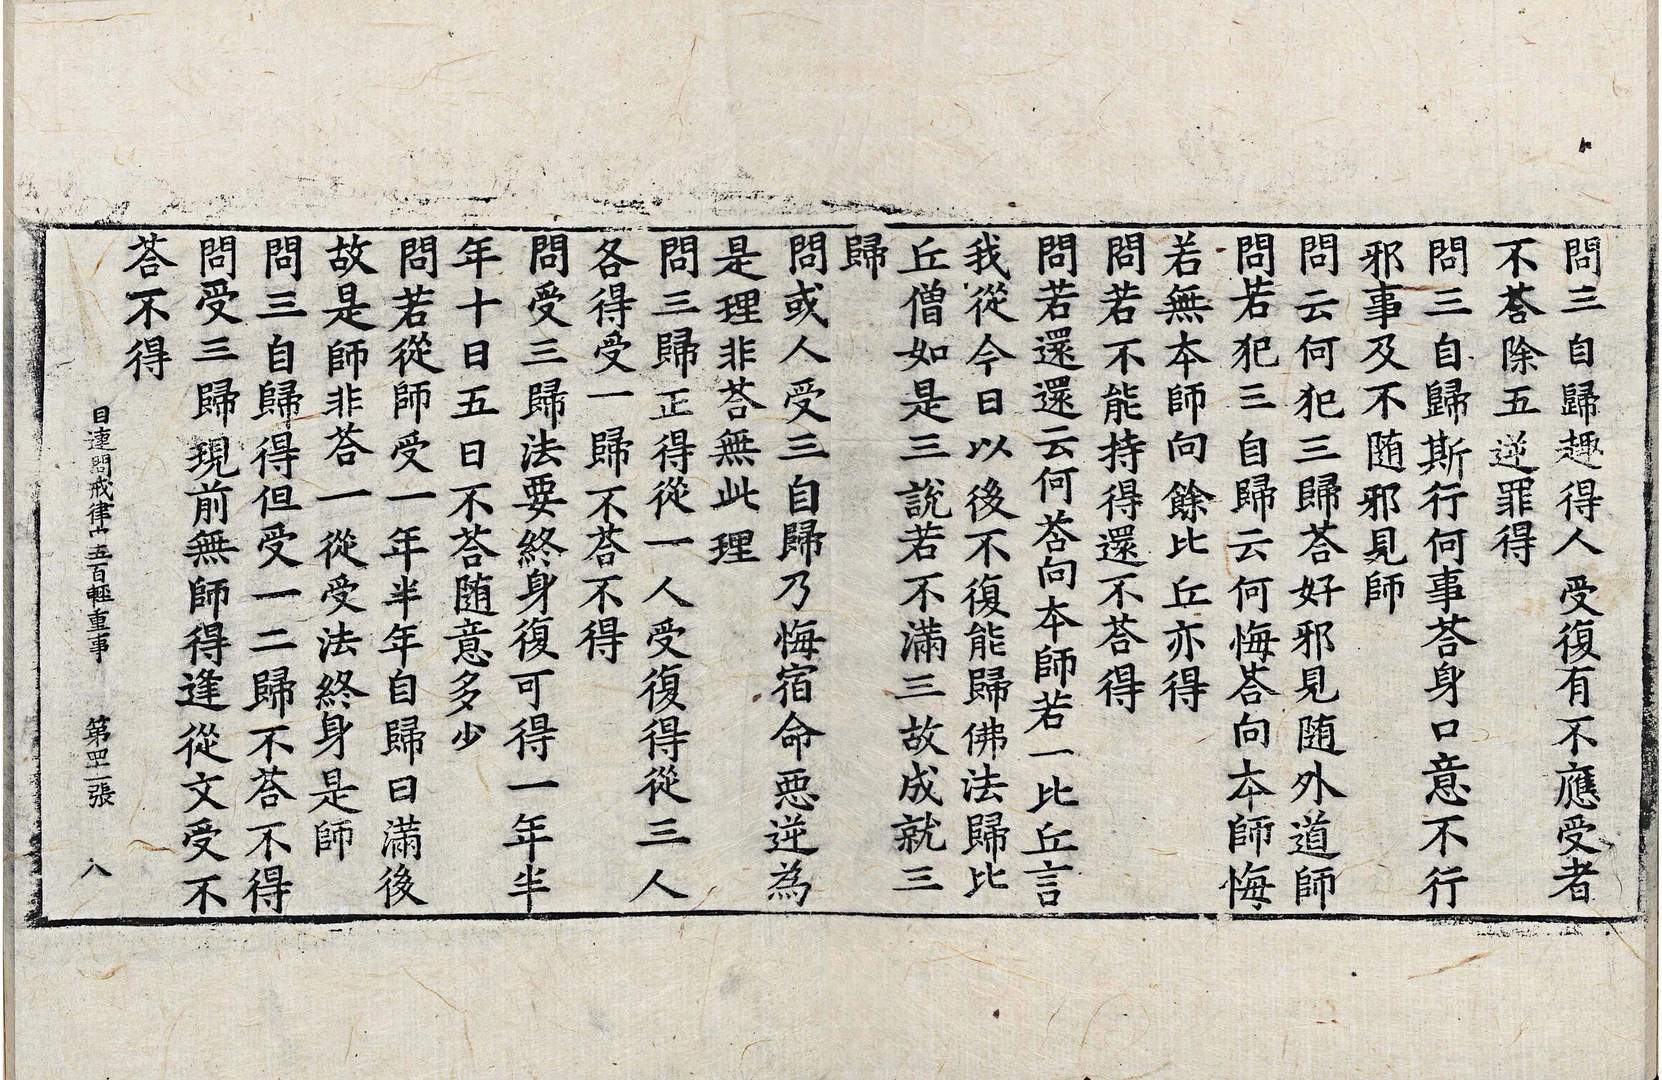 問三自歸趣得人受復有不應受者
不荅除五逆罪得
問三自歸斯行何事荅身口意不行
邪事及不随邪見師
問云何犯三歸荅好邪見随外道師
問若犯三自歸云何悔荅向本師悔
若無本師向餘比丘亦得
問若不能持得還不荅得
問若還還云何荅向本師若一比丘言
我從今日以後不復能歸佛法歸比
丘僧如是三說若不滿三故成就三
歸
問或人受三自歸乃悔宿命惡逆為
是理非荅無此理
問三歸正得從一人受復得從三人
各得受一歸不荅不得
問受三歸法要終身復可得一年半
年十日五日不荅随意多少
問若從師受一年半年自歸日滿後
故是師非荅一從受法終身是師
問三自歸得但受一二歸不荅不得
問受三歸現前無師得逢從文受不
荅不得
目連問戒律中五百輕重事 第四張 八